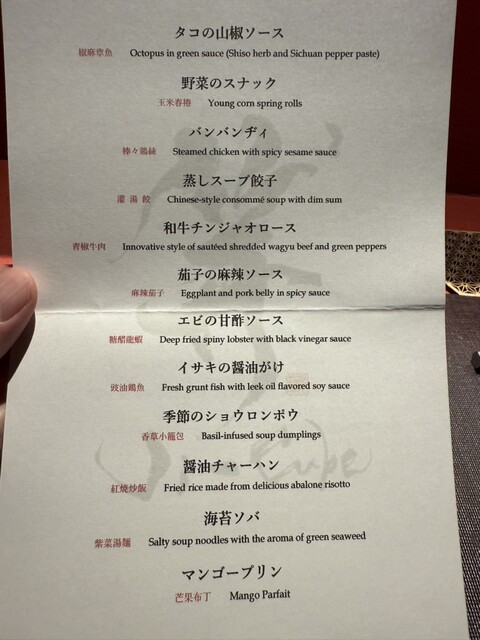 タコの山椒ソース
椒麻章魚 Octopus in green sauce (Shiso herb and Sichuan pepper paste)
野菜のスナック
玉米春捲 Young corn spring rolls
バンバンヂィ
棒々鶏絲 Steamed chicken with spicy sesame sauce
蒸しスープ餃子
灌湯餃 Chinese-style consommé soup with dim sum
和牛チンジャオロース
青椒牛肉 Innovative style of sautéed shredded wagyu beef and green peppers
茄子の麻辣ソース
麻辣茄子 Eggplant and pork belly in spicy sauce
エビの甘酢ソース
糖醋龍蝦 Deep fried spiny lobster with black vinegar sauce
イサキの醤油がけ
豉油鶏魚 Fresh grunt fish with leek oil flavored soy sauce
季節のショウロンポウ
香草小籠包 Basil-infused soup dumplings
醤油チャーハン
紅焼炒飯 Fried rice made from delicious abalone risotto
海苔ソバ
紫菜湯麺 Salty soup noodles with the aroma of green seaweed
マンゴープリン
芒果布丁 Mango Parfait